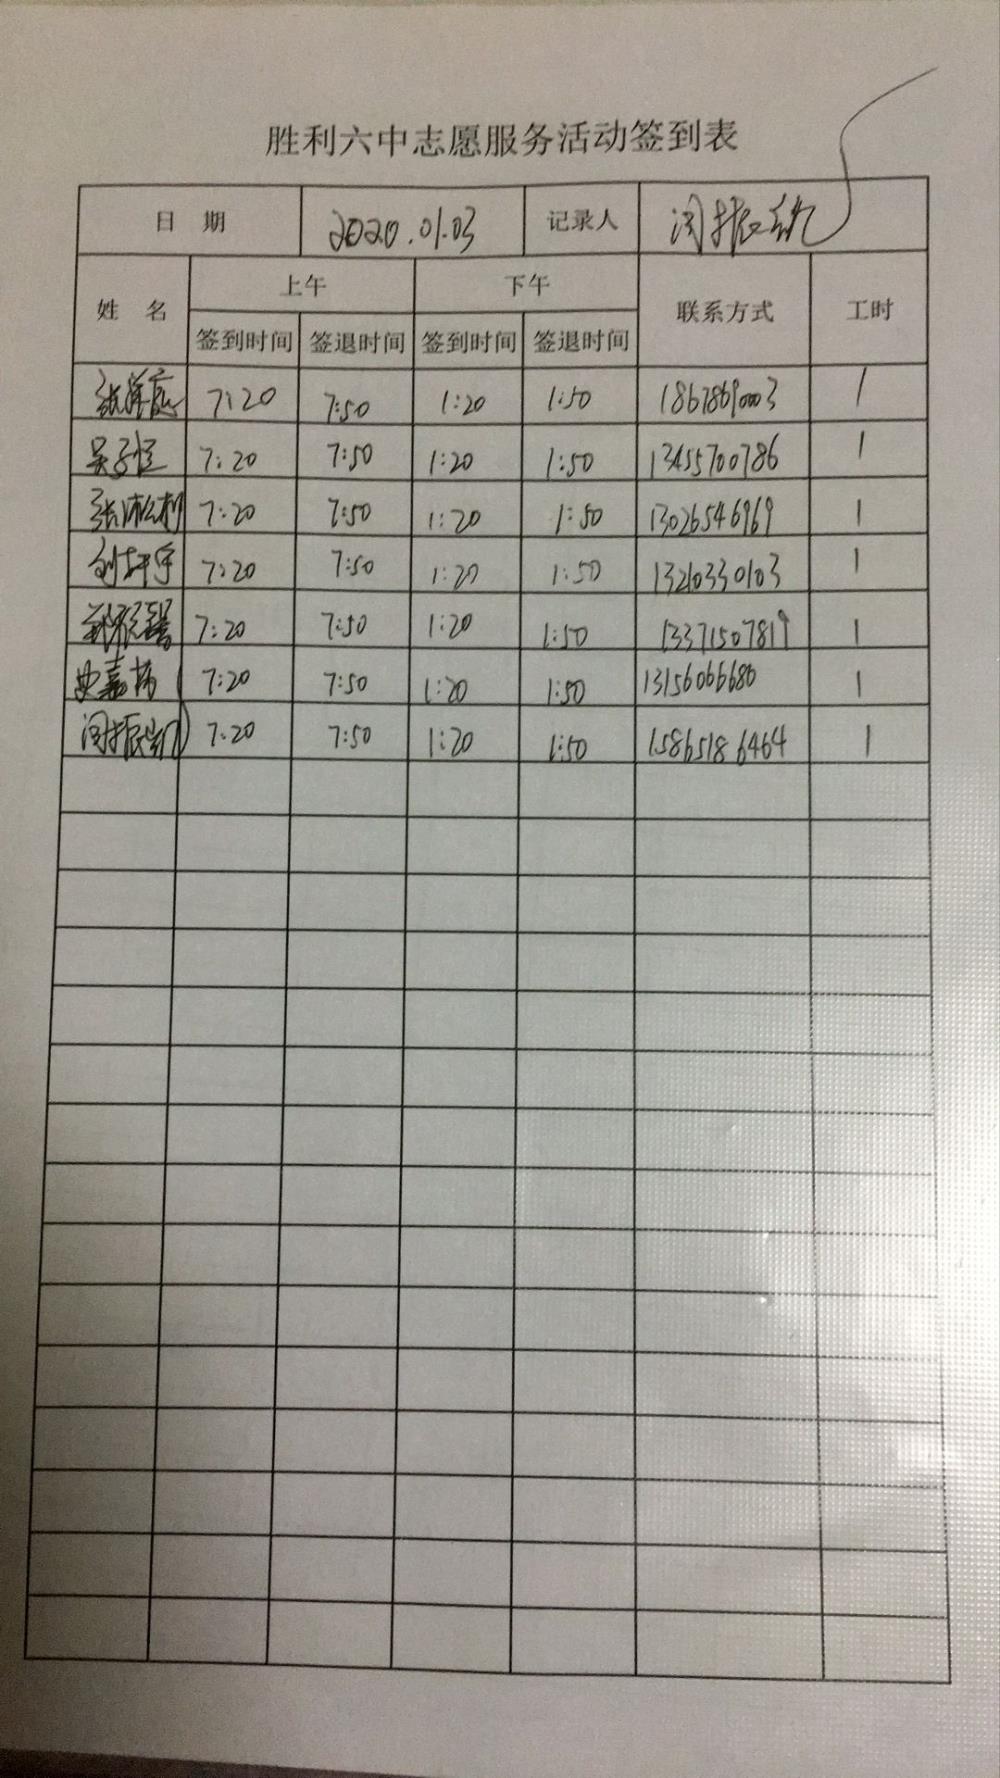 胜利六中志愿服务活动签到表
日 期 2020.01.03 记录人
姓 名 上午 下午 联系方式 工时
签到时间 签退时间 签到时间 签退时间
7:20 7:50 1:20 1:50 18678690003 1
吴子恒 7:20 7:50 1:20 1:50 13455700786 1
7:20 7:50 1:20 1:50 13026546969 1
刘轩宇 7:20 7:50 1:20 1:50 13210330103 1
7:20 7:50 1:20 1:50 13371507819 1
史嘉栋 7:20 7:50 1:20 1:50 13156066680 1
闫振凯 7:20 7:50 1:20 1:50 15865186464 1